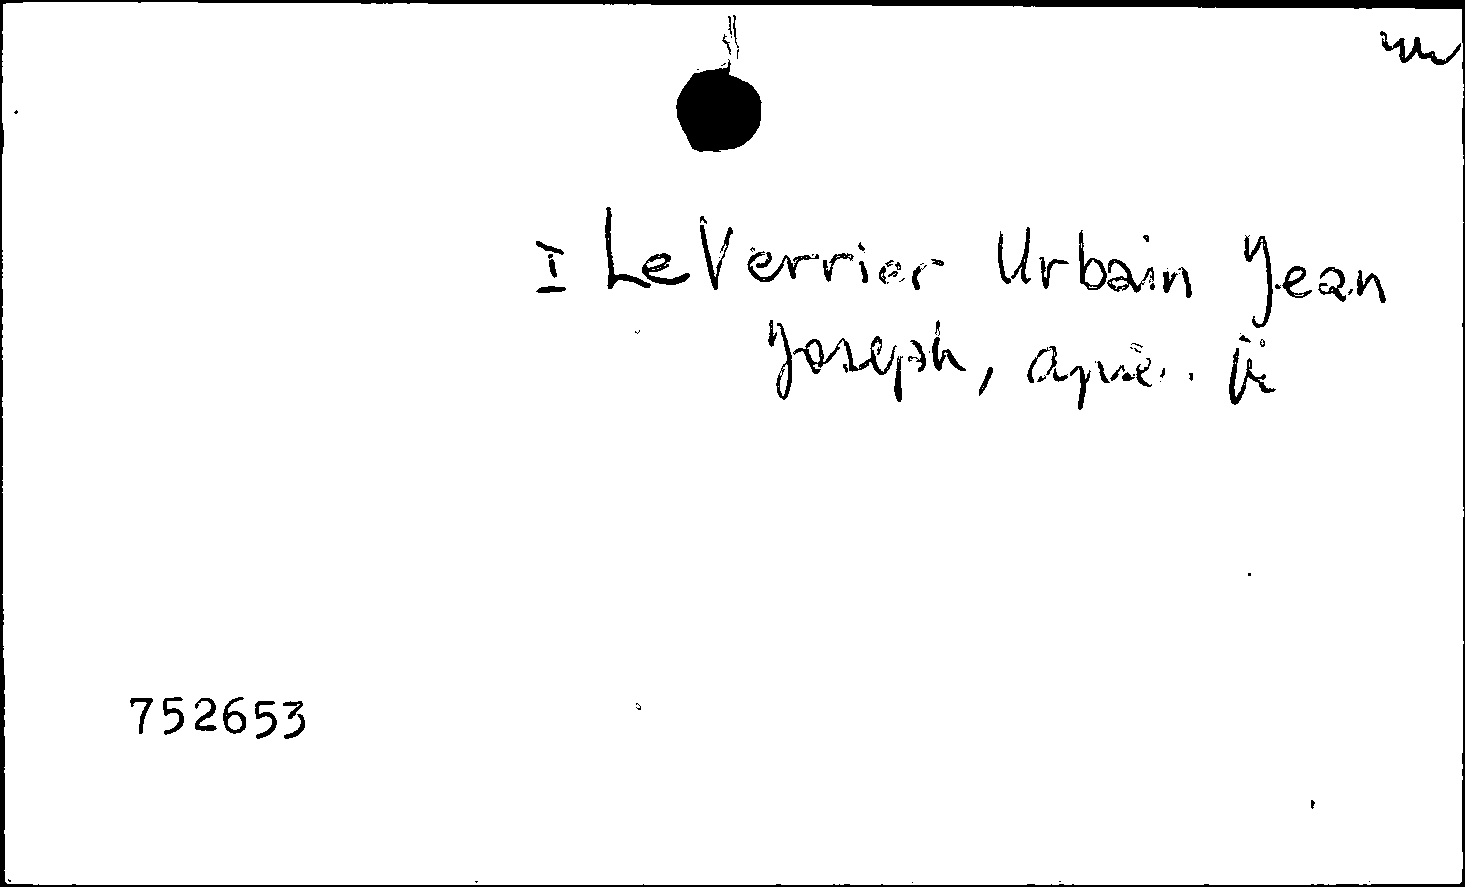 I LeVerrier Urbain Jean
Joseph, après
752653